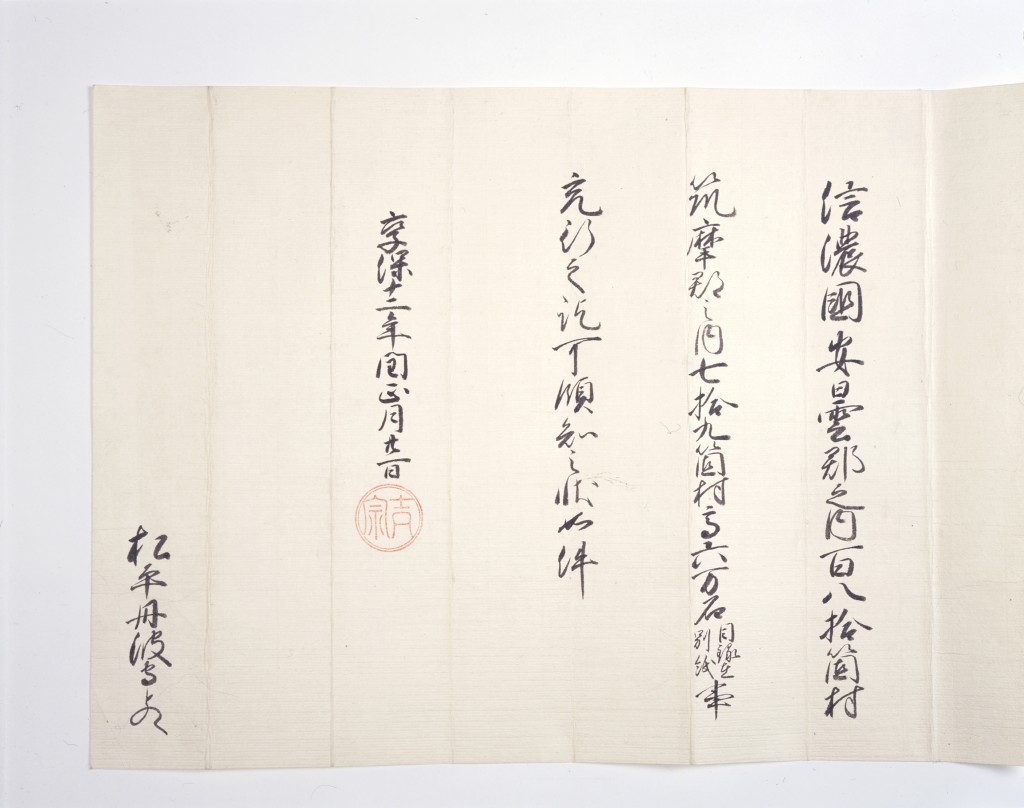 信濃國安曇郡之内百八拾箇村
筑摩郡之内七拾九箇村高六万石目録在別紙事
充行之訖可領知之状如件
享保十一年閏正月廿一日
吉宗
松平丹波守とのへ